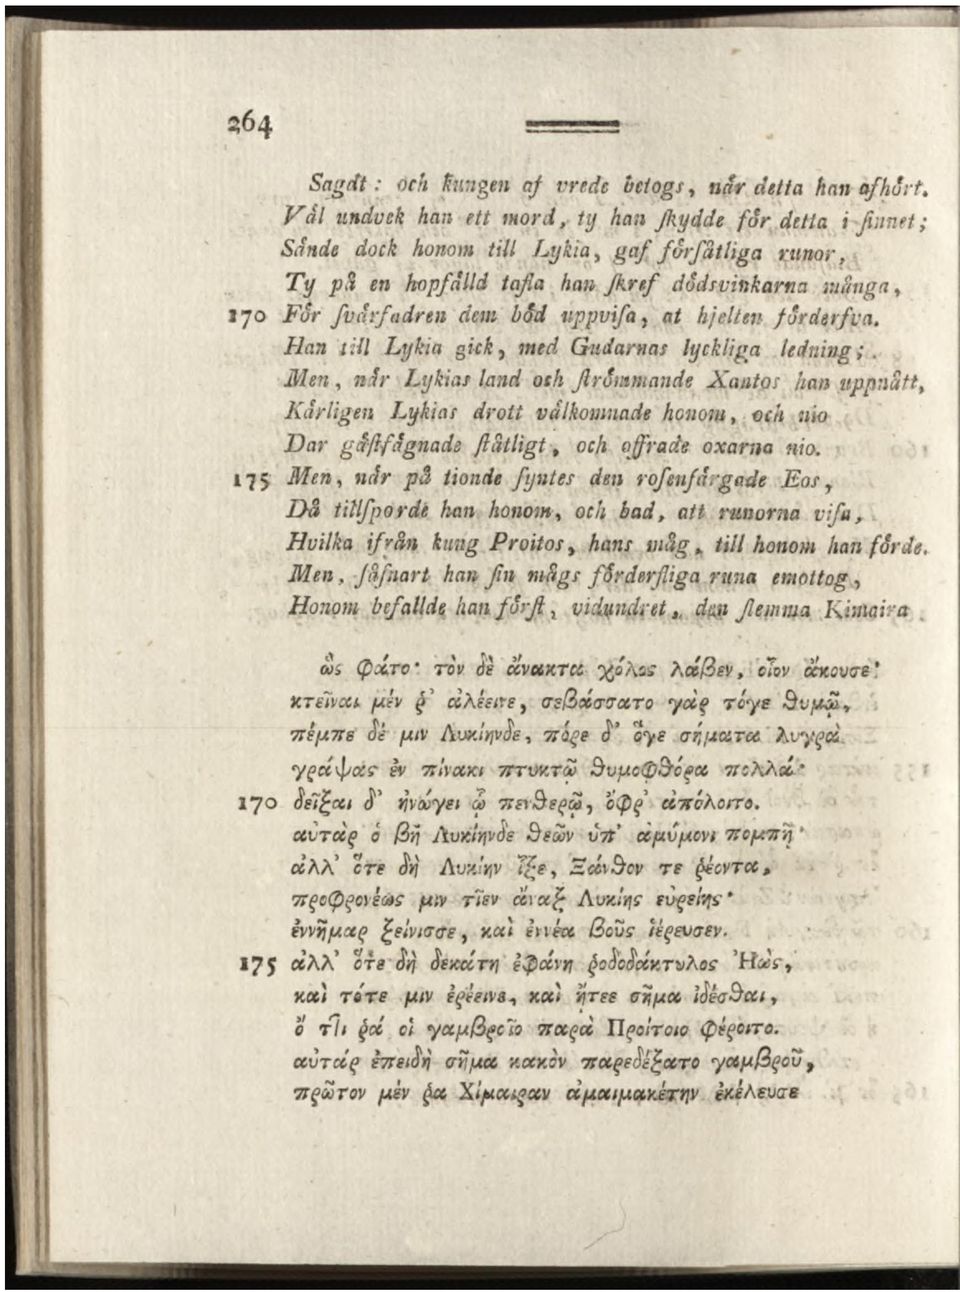 264
Sagdt: och kungen af vrede betogs, når detta han afhôrt.
Vål undvek han ett mord, ty han ſkydde fôr detta i ſinnet;
Sånde dock honom till Lykia, gaf fôrſåtliga runor,
Ty på en hopfålld tafla han ſkref dôdsvinkarna många,
170 Fôr ſvårfadren dem bôd uppviſa, at hjelten fôrderfva.
Han till Lykia gick, med Gudarnas lyckliga ledning;
Men, når Lykias land och ſtrômmande Xantos han uppnått,
Kårligen Lykias drott vålkomnade honom, och nio
Dar gåſtfågnade ſtåtligt, och offrade oxarna nio.
175 Men, når på tionde ſyntes den roſenfårgade Eos,
Då tillſporde han honom, och bad, att runorna viſa,
Hvilka ifrån kung Proitos, hans måg, till honom han fôrde.
Men, ſåſnart han ſin mågs fôrderfliga runa emottog,
Honom befallde han fôrſt, vidundret, den ſlemma Kimaira
ὣς φάτο· τὸν δὲ ἄνακτα χόλος λάβεν, οἷον ἄκουσε·
κτεῖναι μέν ῥ᾽ ἀλέεινε, σεβάσσατο γὰρ τόγε θυμῷ,
πέμπε δέ μιν Λυκίηνδε, πόρε δ᾽ ὅγε σήματα λυγρὰ
γράψας ἐν πίνακι πτυκτῷ θυμοφθόρα πολλά·
170 δεῖξαι δ᾽ ἠνώγει ᾧ πενθερῷ, ὄφρ᾽ ἀπόλοιτο.
αὐτὰρ ὁ βῆ Λυκίηνδε θεῶν ὑπ᾽ ἀμύμονι πομπῇ·
ἀλλ᾽ ὅτε δὴ Λυκίην ἷξε, Ξάνθον τε ῥέοντα,
προφρονέως μιν τῖεν ἄναξ Λυκίης εὐρείης·
ἐννῆμαρ ξείνισσε, καὶ ἐννέα βοῦς ἱέρευσεν.
175 ἀλλ᾽ ὅτε δὴ δεκάτη ἐφάνη ῥοδοδάκτυλος Ἠὼς,
καὶ τότε μιν ἐρέεινε, καὶ ᾔτεε σῆμα ἰδέσθαι,
ὅ ττι ῥά οἱ γαμβροῖο παρὰ Προίτοιο φέροιτο.
αὐτάρ ἐπειδὴ σῆμα κακὸν παρεδέξατο γαμβροῦ,
πρῶτον μέν ῥα Χίμαιραν ἀμαιμακέτην ἐκέλευσε